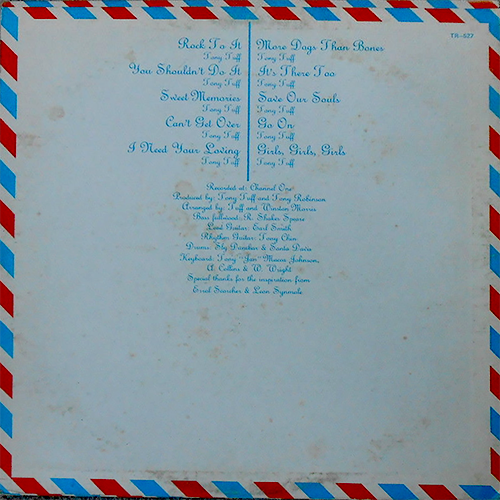 TR-627
Rock To It
Tony Tuff
You Shouldn't Do It
Tony Tuff
Sweet Memories
Tony Tuff
Can't Get Over
Tony Tuff
I Need Your Loving
Tony Tuff
More Dogs Than Bones
Tony Tuff
It's There Too
Tony Tuff
Save Our Souls
Tony Tuff
Go On
Tony Tuff
Girls, Girls, Girls
Tony Tuff
Recorded at: Channel One
Produced by: Tony Tuff and Tony Robinson
Arranged by: Tuff and Winston Morris
Bass fullwood: R. Shakes Speare
Lead Guitar: Earl Smith
Rhythm Guitar: Tony Chin
Drums: Sly Dunbar & Santa Davis
Keyboard: Tony "Jus" Means Johnson,
A. Collins & W. Wright
Special thanks for the inspiration from
Errol Scorcher & Leon Synmoie